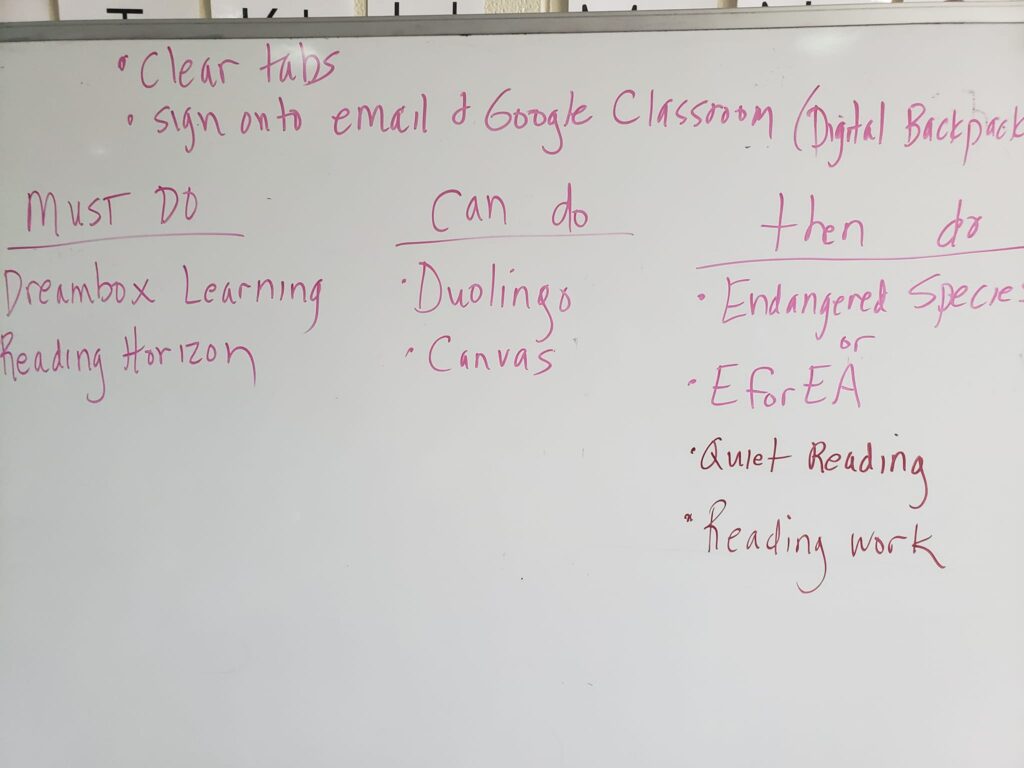 • Clear tabs
• sign onto email & Google Classroom (Digital Backpack
Must Do
Dreambox Learning
Reading Horizon
Can do
• Duolingo
• Canvas
then do
• Endangered Species
or
• E for EA
• Quiet Reading
• Reading work